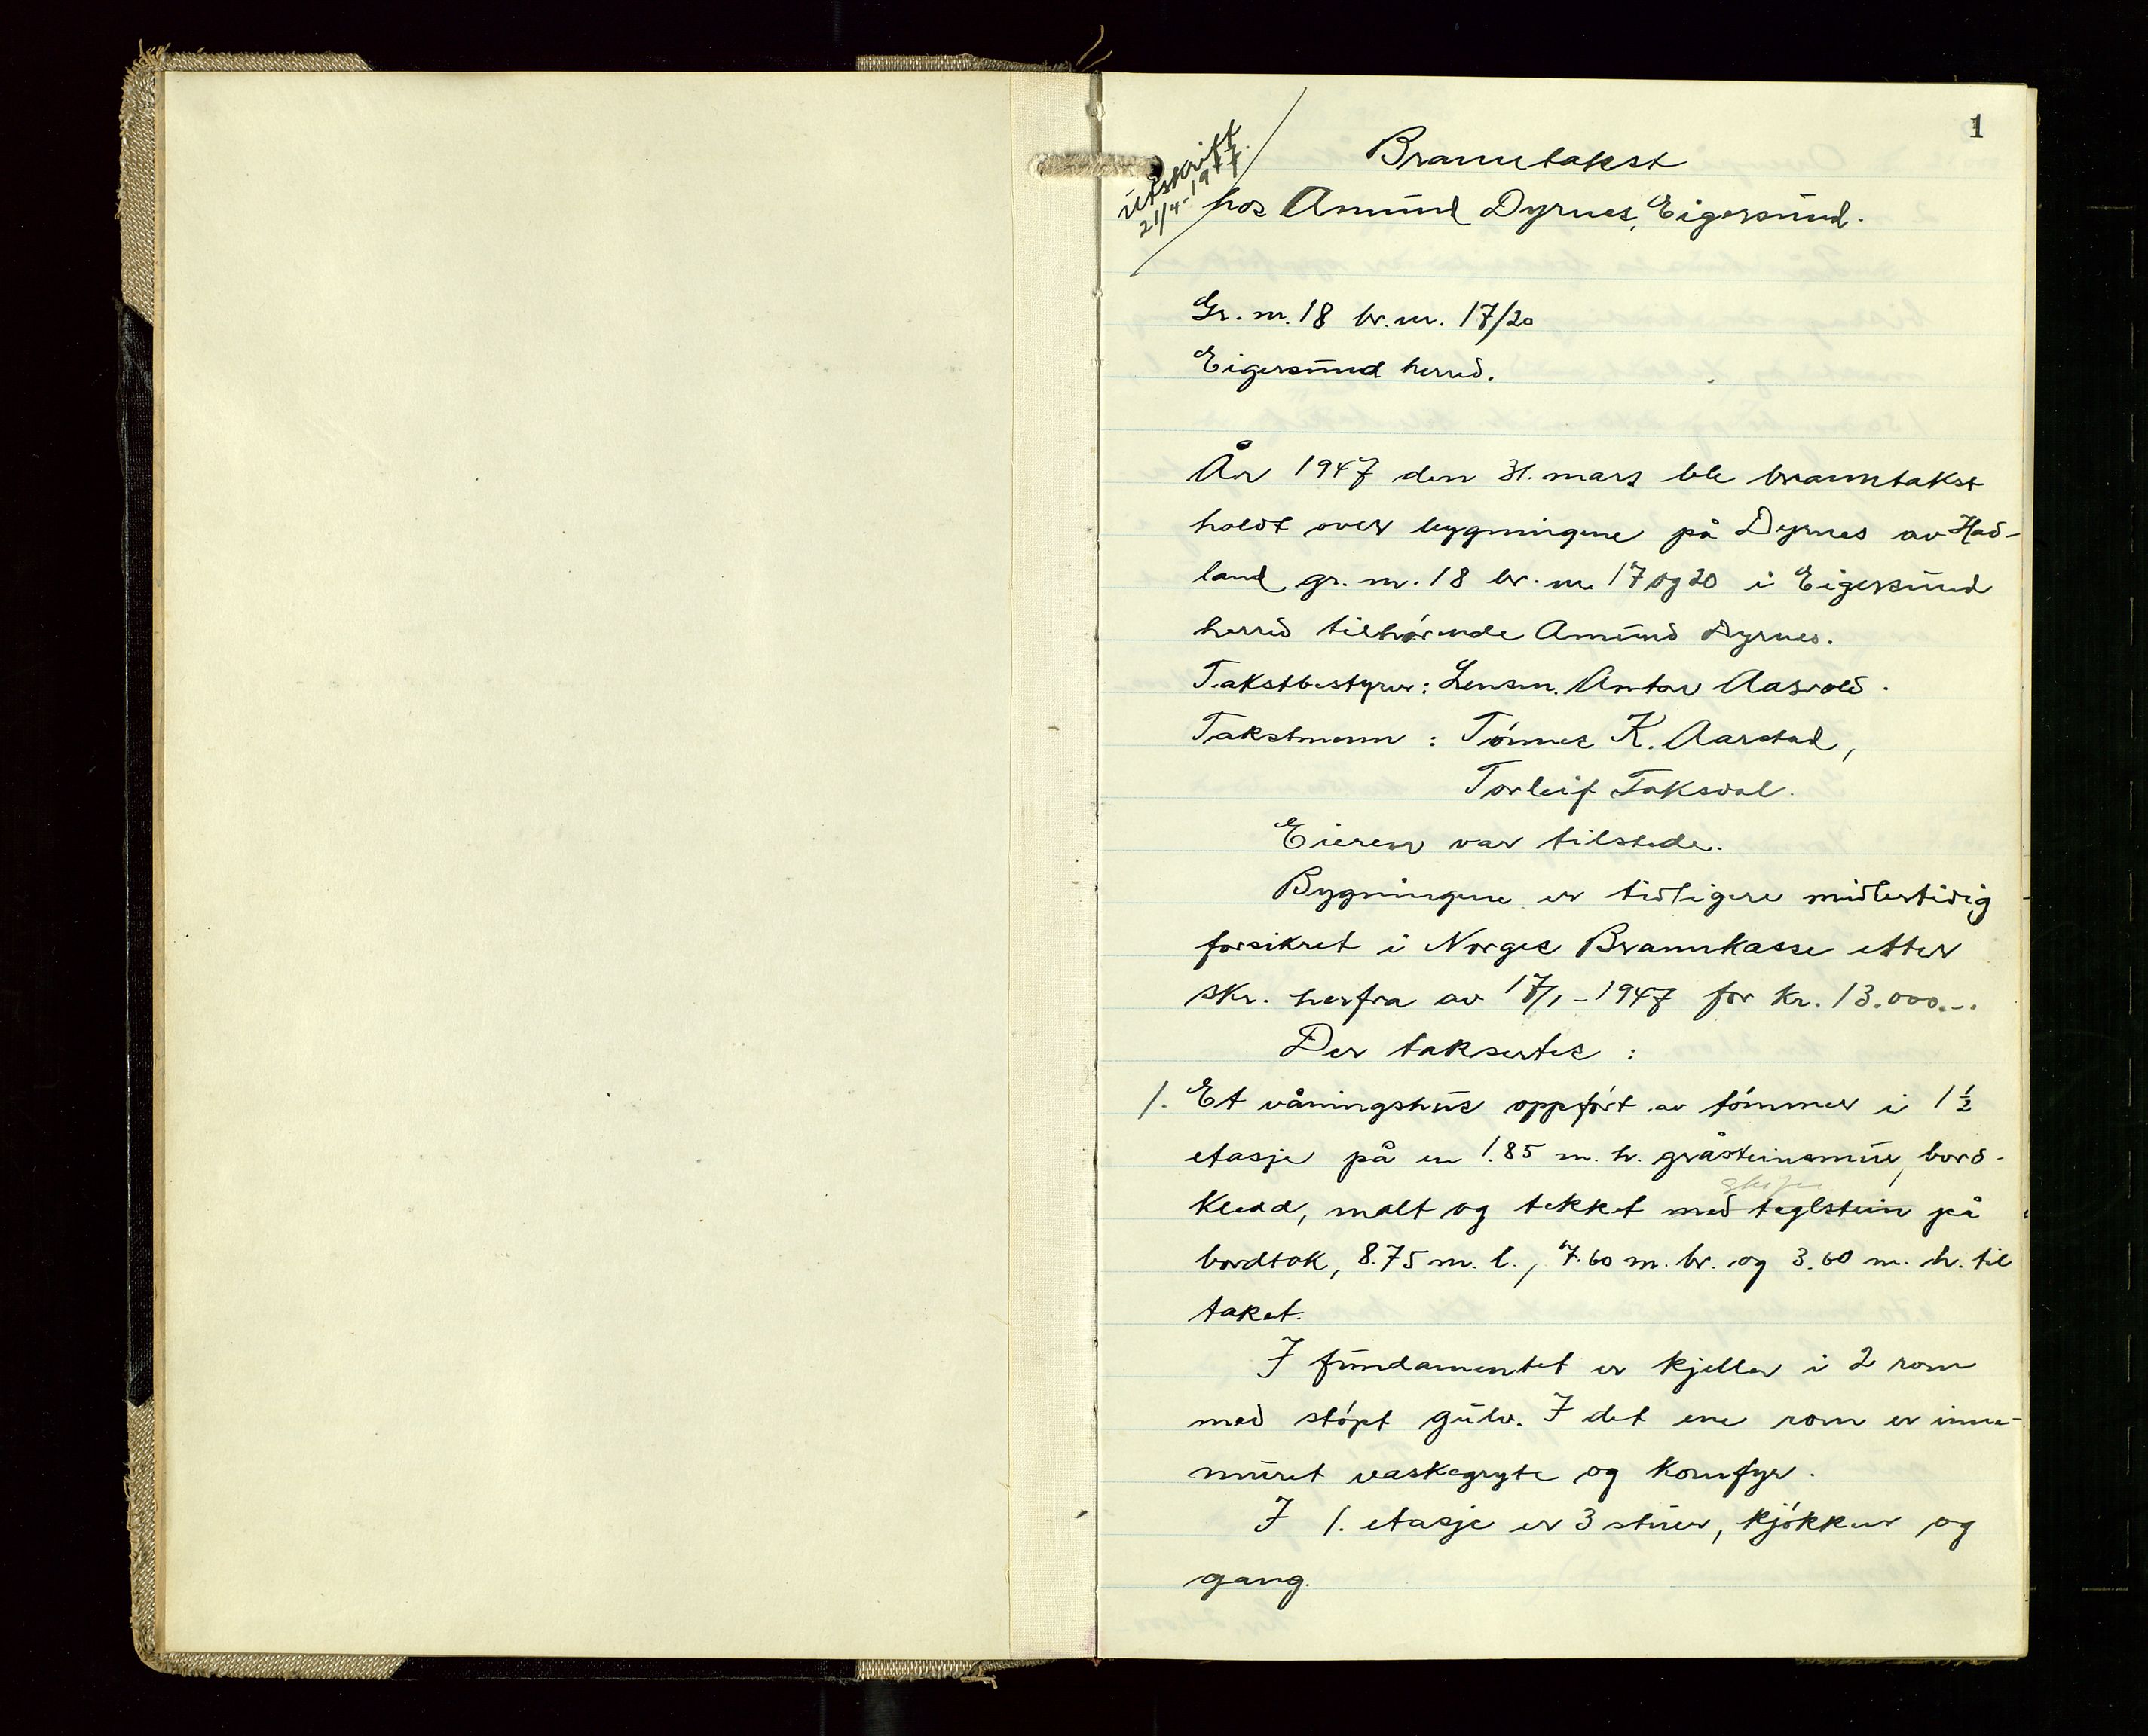 1
utskrift
21/4-1977.
Branntakst
hos Amund Dyrnes, Eigersund.
Gr. nr. 18 br. nr. 17/20
Eigersund herred.
År 1947 den 31. mars ble branntakst
holdt over bygningene på Dyrnes av Had-
land gr. nr. 18 br. nr. 17 og 20 i Eigersund
herred tilhørende Amund Dyrnes.
Takstbestyrer: Lensm. Anton Aasvold.
Takstmenn: Tønnes K. Aarstad,
Torleif Taksdal.
Eieren var tilstede.
Bygningene er tidligere midlertidig
forsikret i Norges Brannkasse etter
skr. herfra av 17/1-1947 for kr. 13.000.-.
Der taksertes:
1. Et våningshus oppført av tømmer i 1½
etasje på en 1.85 m. h. gråsteinsmur, bord-
kledd, malt og tekket med teglstein på
bordtak, 8.75 m. l., 7.60 m. br. og 3.60 m. h. til
taket.
I fundamentet er kjeller i 2 rom
med støpt gulv. I det ene rom er inne-
muret vaskegryte og komfyr.
I 1. etasje er 3 stuer, kjøkken og
gang.